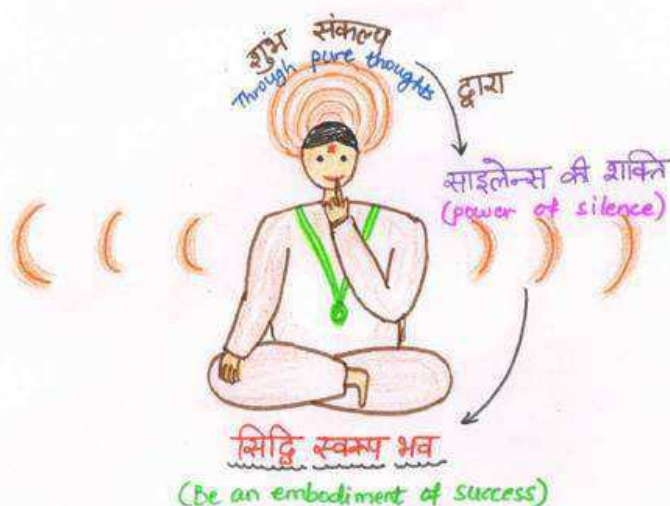 शुभ संकल्प
Through pure thoughts
द्वारा
साइलेन्स की शक्ति
(power of silence)
सिद्धि स्वरूप भव
(Be an embodiment of success)